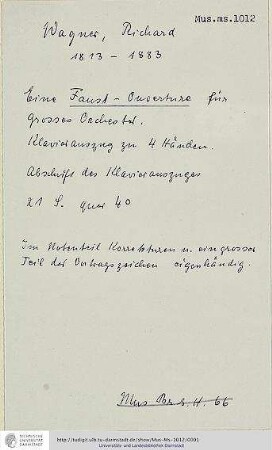 Mus.ms.1012
Wagner, Richard
1813 - 1883
Eine Faust-Ouverture für
grosses Orchester.
Klavierauszug zu 4 Händen.
Abschrift des Klavierauszuges
21 S. quer 4°
Im Notenteil Korrekturen u. ein grosser
Teil der Vortragszeichen eigenhändig.
TECHNISCHE
UNIVERSITÄT
DARMSTADT
http://tudigit.ulb.tu-darmstadt.de/show/Mus-Ms-1012/0001
Universitäts- und Landesbibliothek Darmstadt